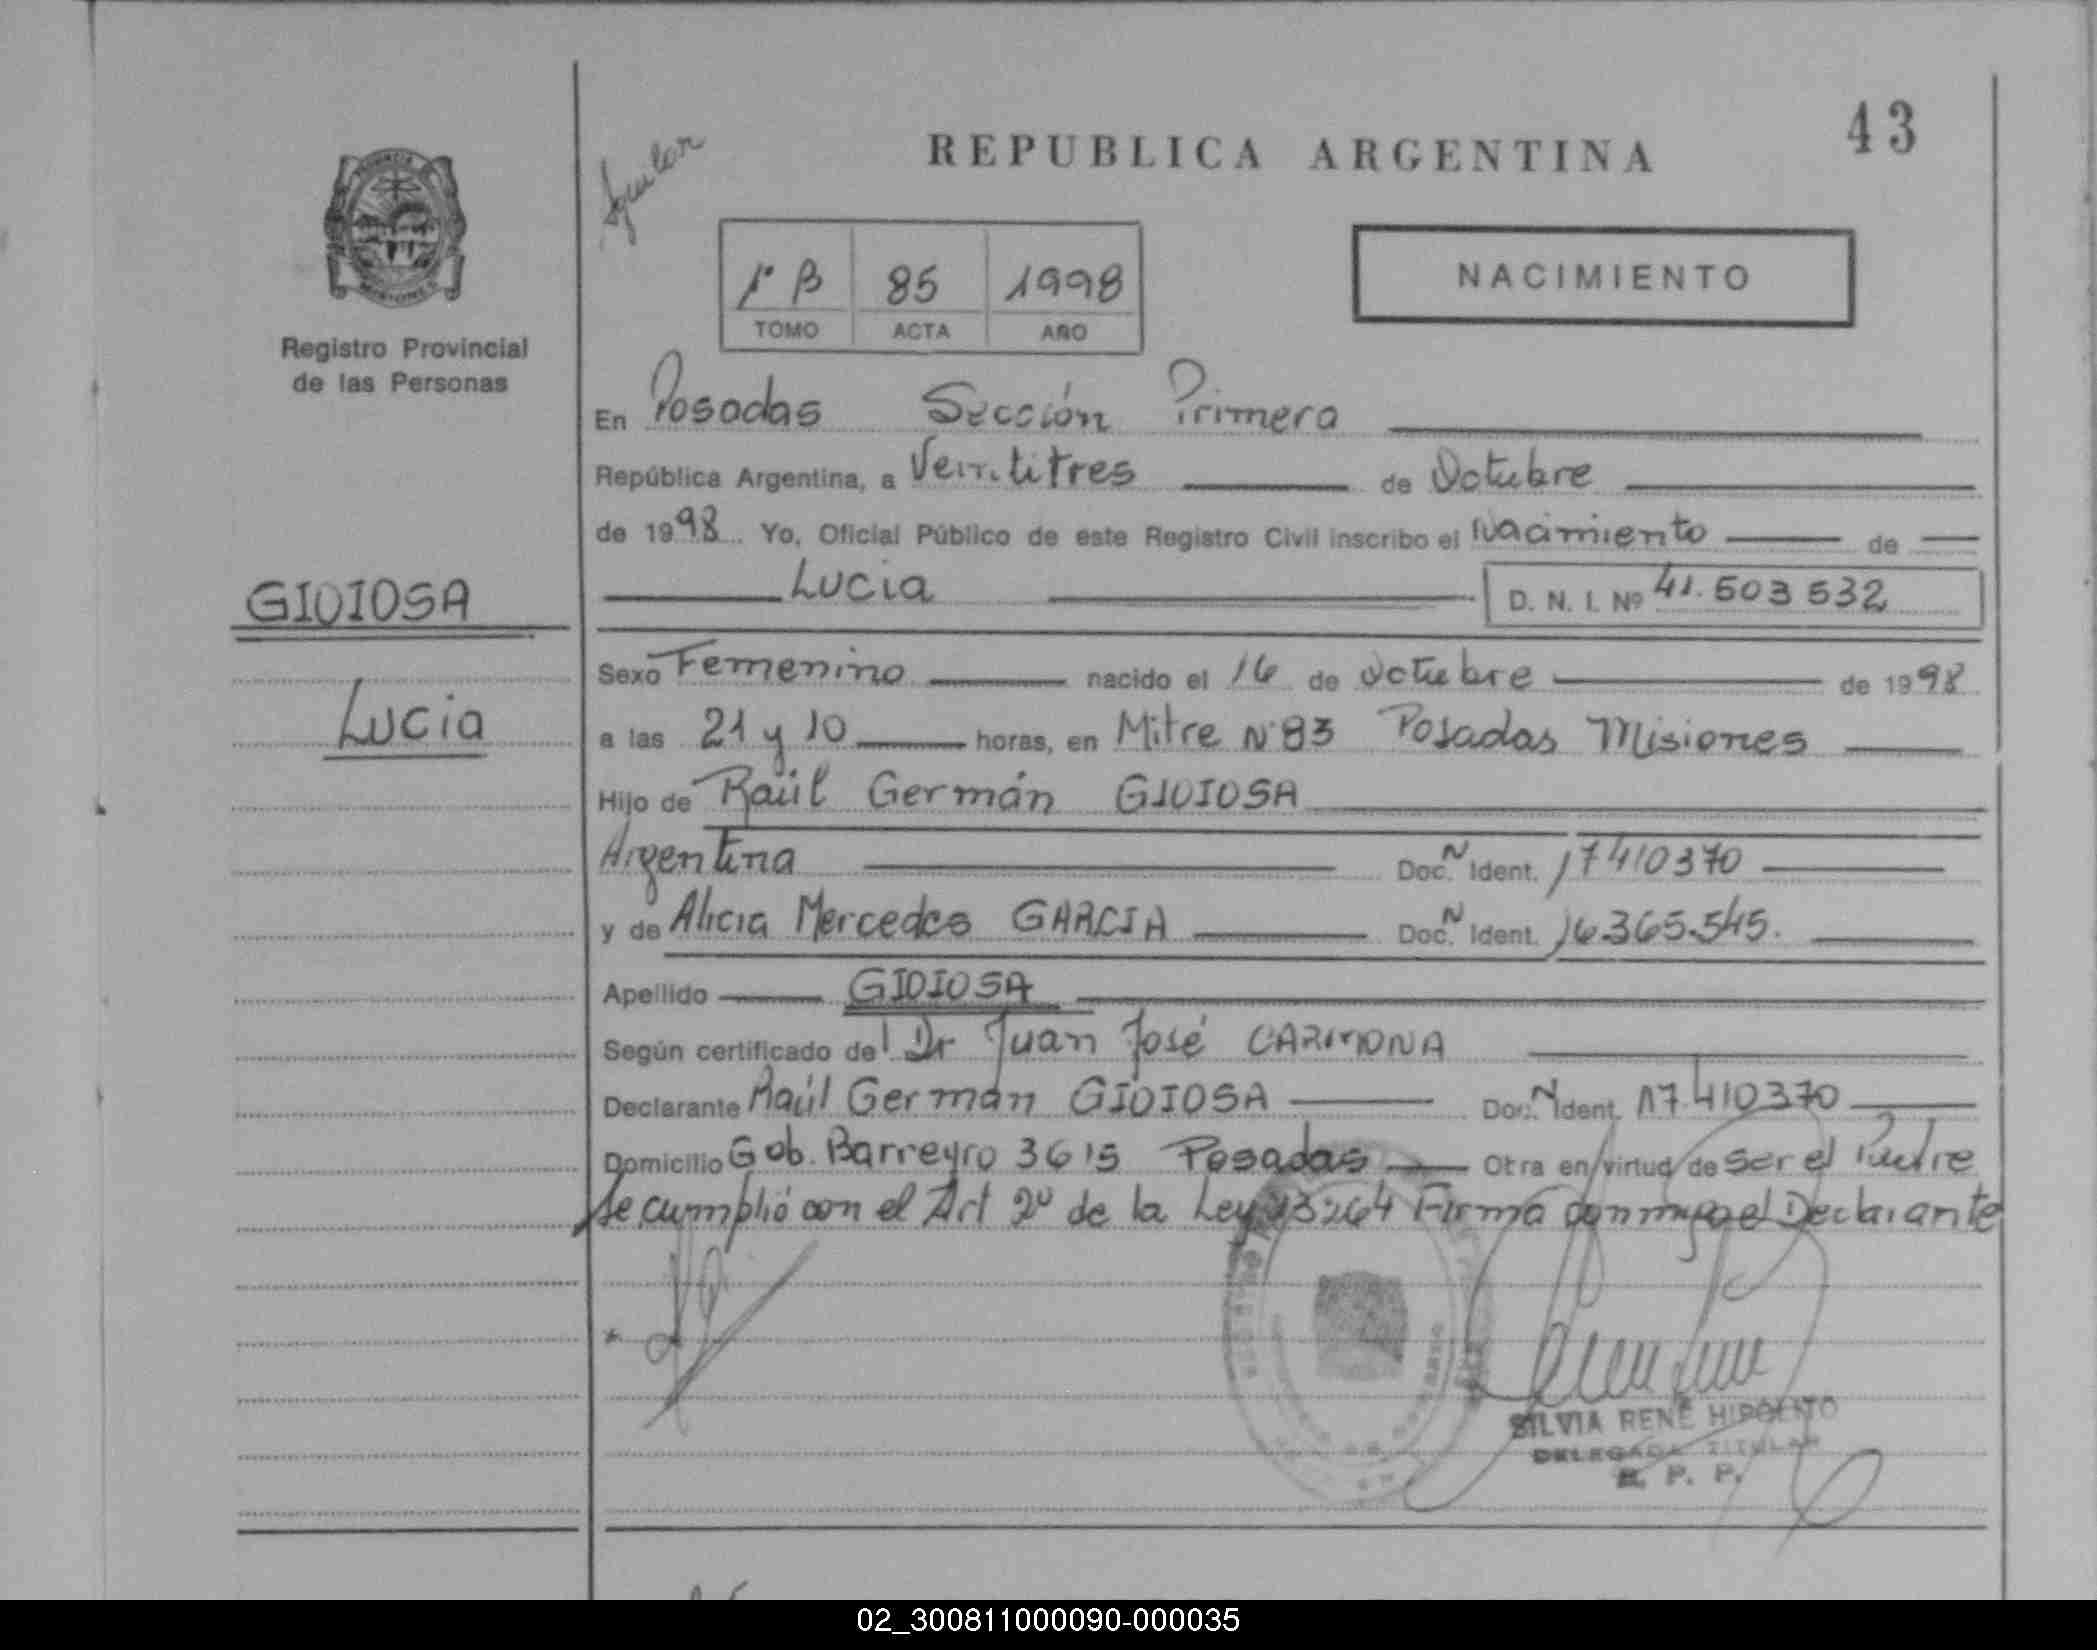 43
REPUBLICA ARGENTINA
Aguilar
1º B 85 1998
TOMO ACTA AÑO
NACIMIENTO
Registro Provincial
de las Personas
En Posadas Sección Primera
República Argentina, a Veintitres de Octubre
de 1998. Yo, Oficial Público de este Registro Civil inscribo el Nacimiento de
Lucia D. N. I. Nº 41.503 532
GIOIOSA
Lucia
Sexo Femenino nacido el 16 de Octubre de 1998
a las 21 y 10 horas, en Mitre Nº 83 Posadas Misiones
Hijo de Raúl Germán GIOIOSA
Argentina Doc. N Ident. 17410370
y de Alicia Mercedes GARCIA Doc. N Ident. 16.365.545.
Apellido GIOIOSA
Según certificado del Dr Juan José CARMONA
Declarante Raúl Germán GIOIOSA Doc. N Ident. 17.410370
Domicilio Gob. Barreyro 3615 Posadas Otra en virtud de ser el Padre
Se cumplió con el Art 2º de la Ley 23264 Firma conmigo el Declarante
SILVIA RENÉ HIPOLITO
DELEGADA TITULAR
R. P. P.
02_300811000090-000035